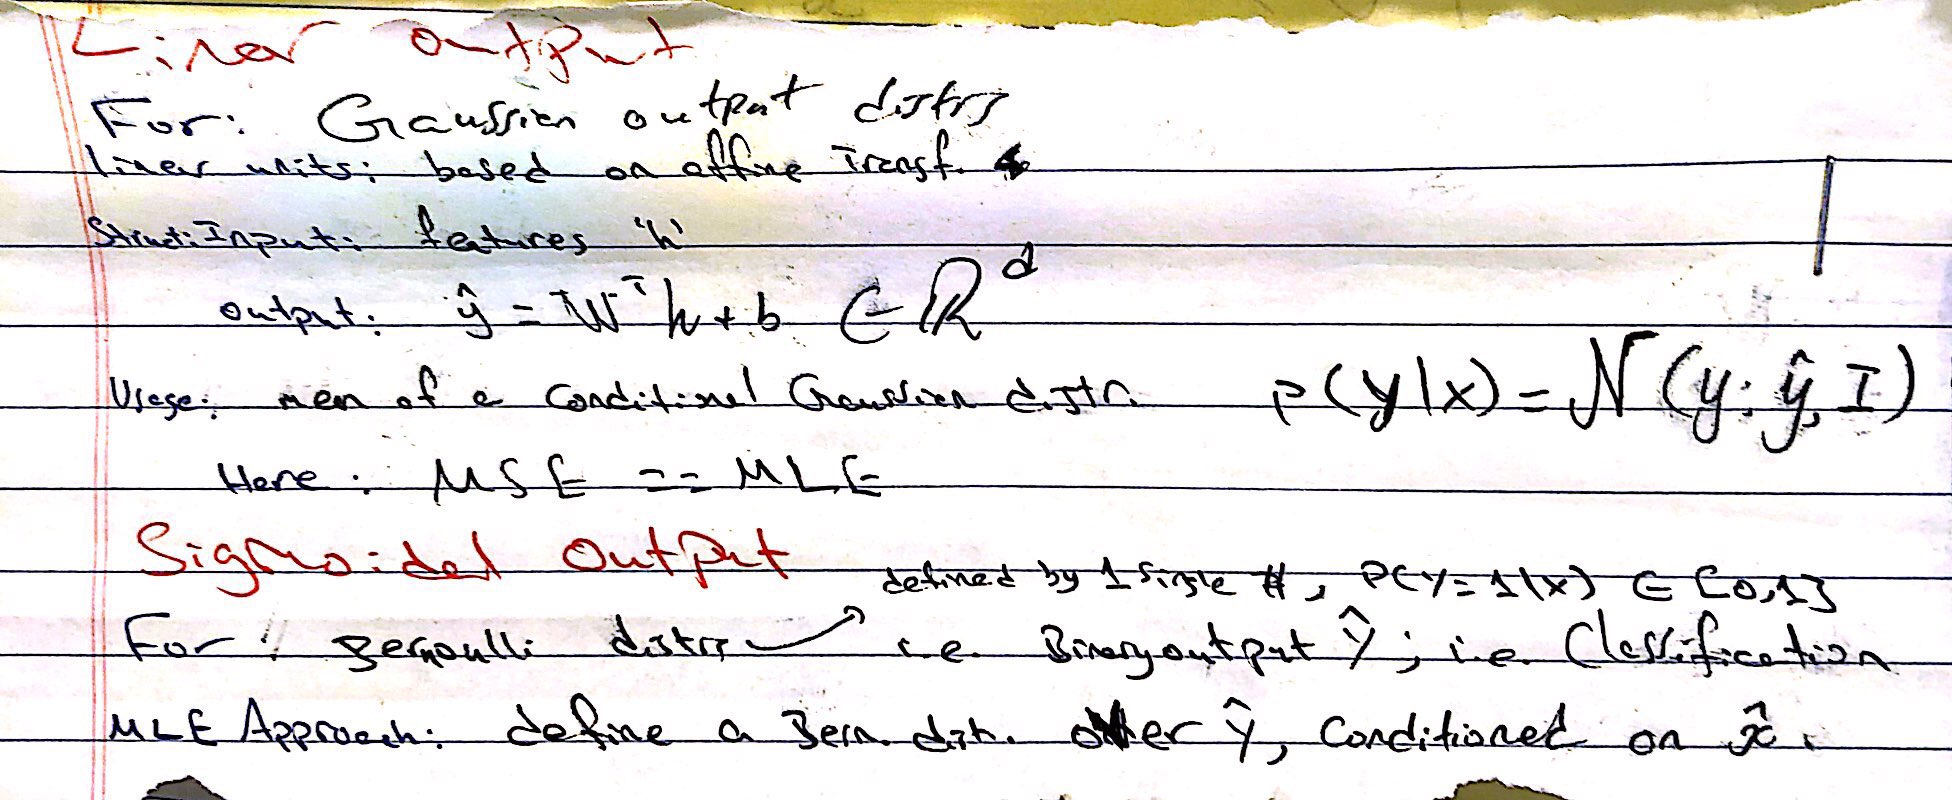 Liner output
For: Gaussian output distrs
liner units: based on affine Transf.
Struct: Input: features 'h'
output: ŷ = Wᵀh + b ∈ ℝᵈ
Usage: men of a Conditional Gaussian distr. P(y|x) = N(y; ŷ, I)
Here: MSE == MLE
Sigmoidal Output
defined by 1 single #, P(y=1|x) ∈ [0,1]
For: Bernoulli distrs i.e. Binary output Ŷ; i.e. Classification
MLE Approach: define a Bern. dist. over Ŷ, Conditioned on x̂.